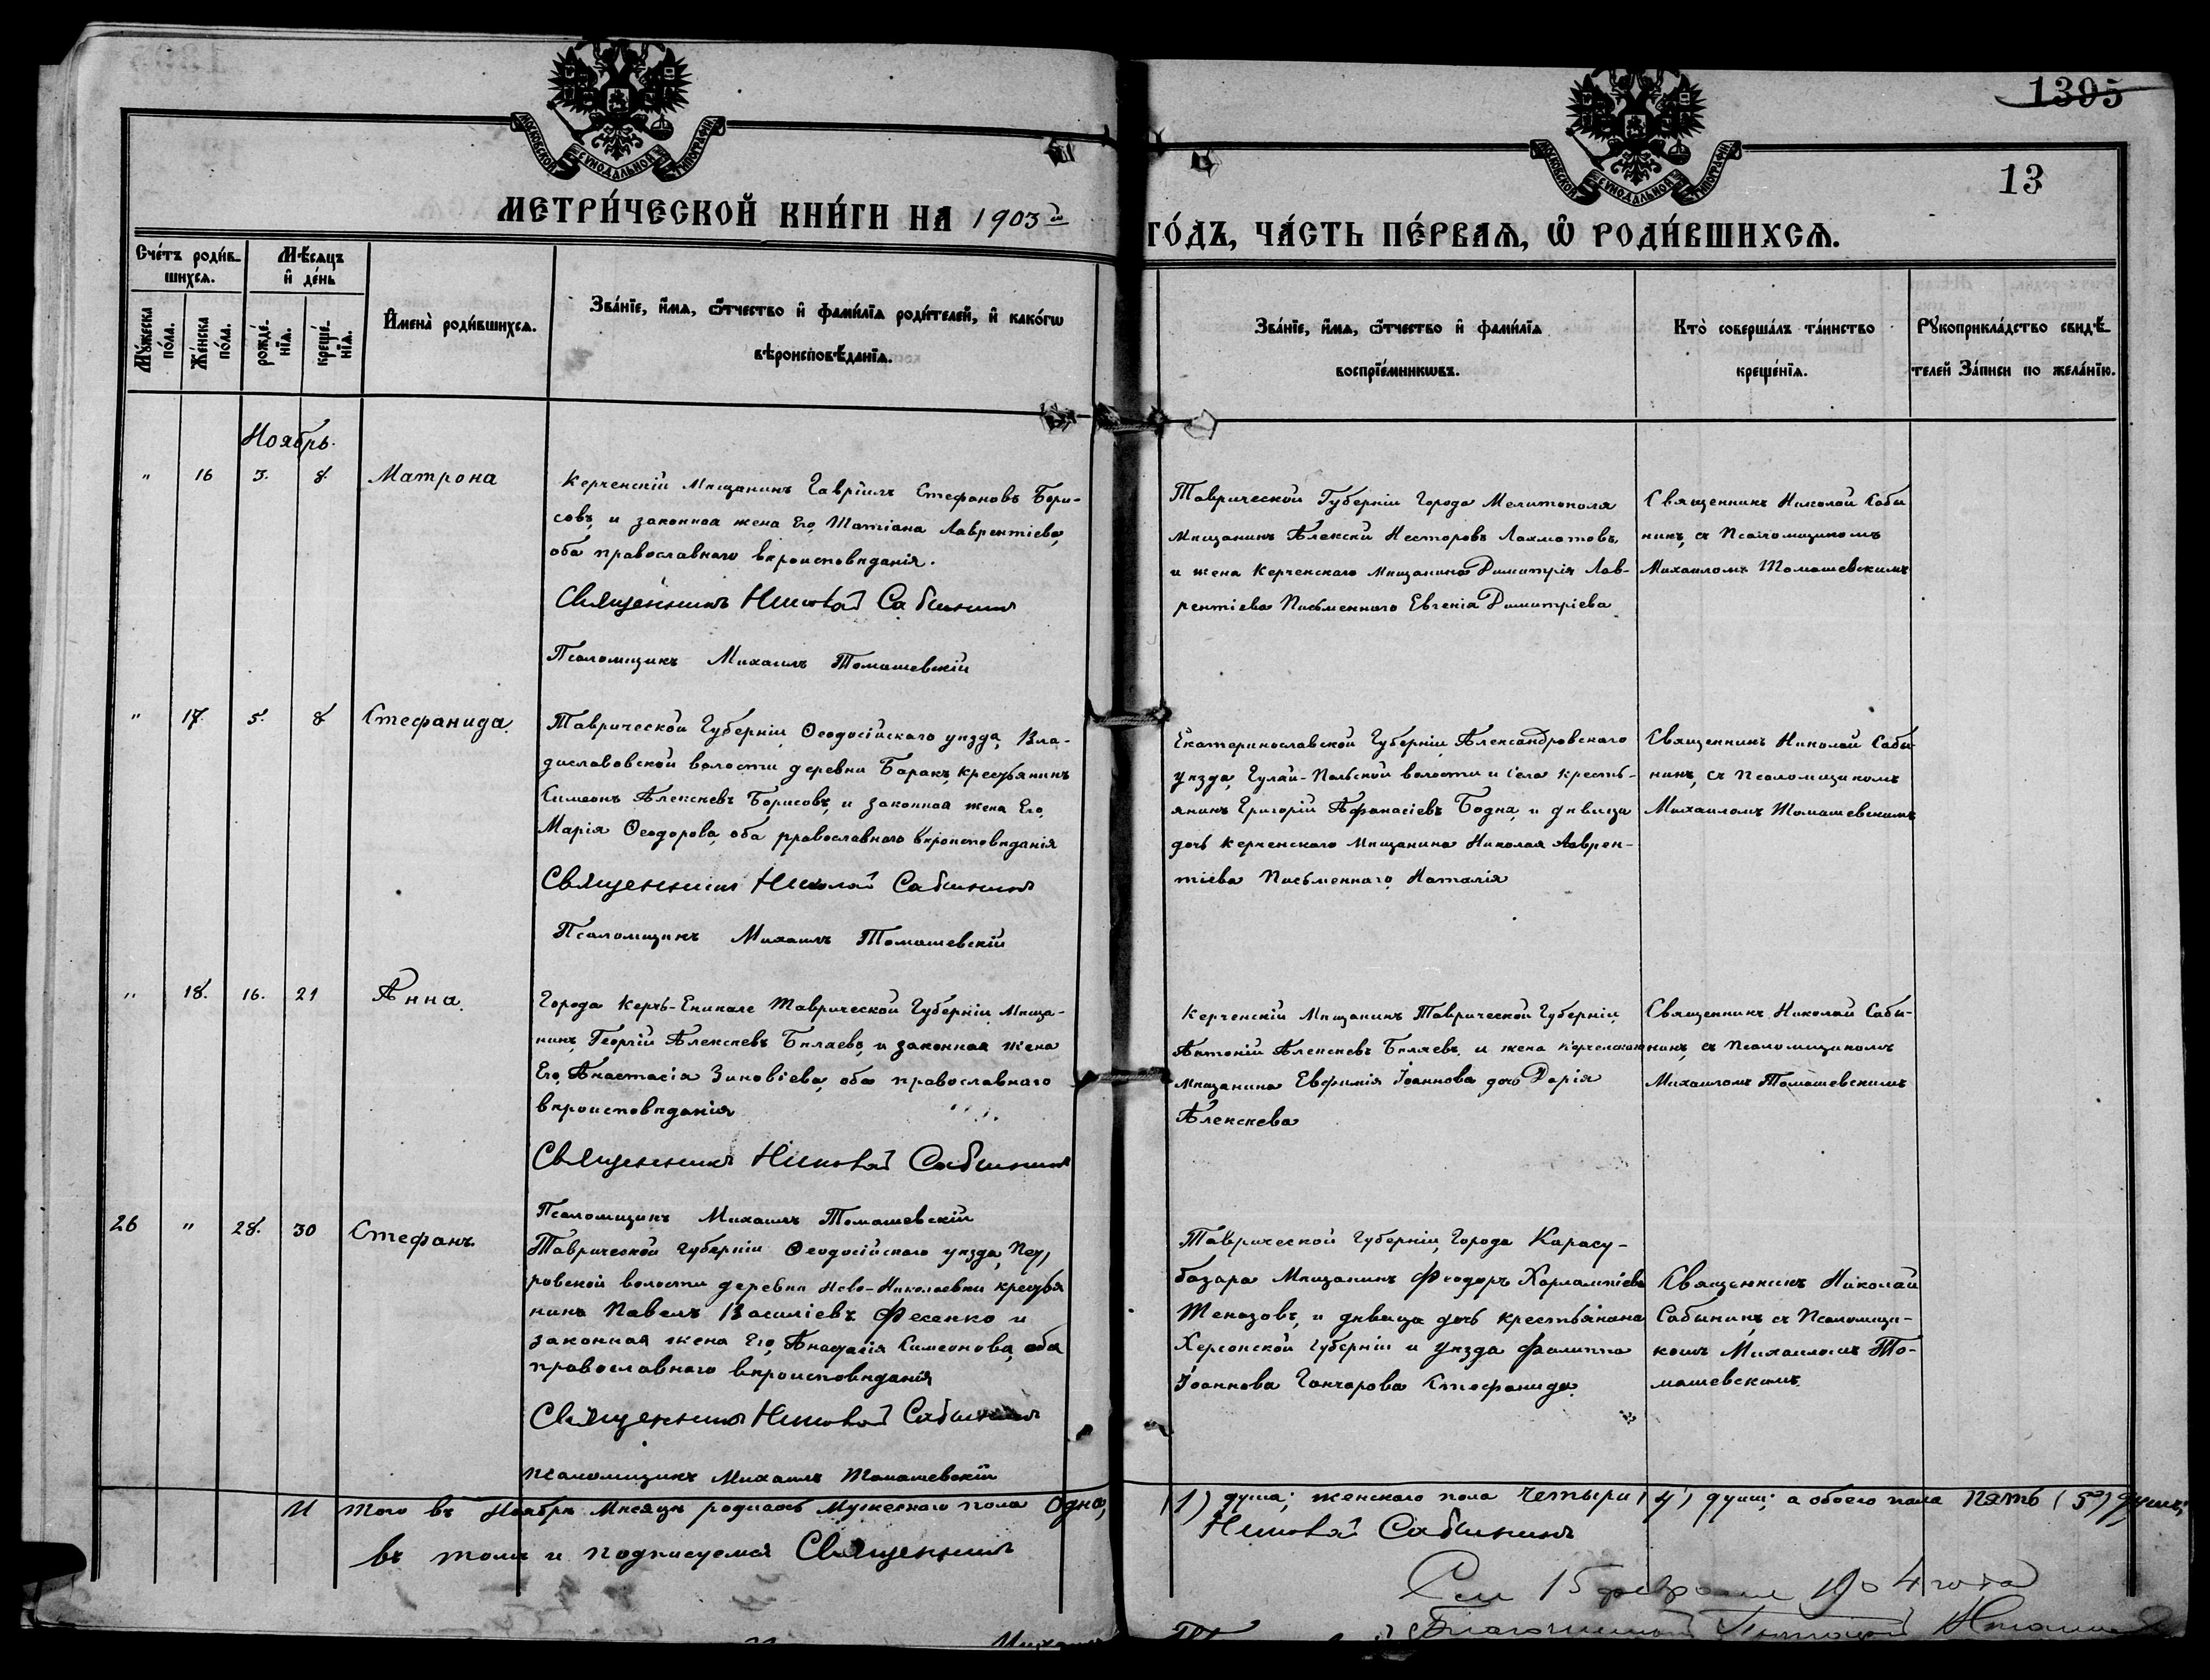 1395
13
МОСКОВСКОЙ СѴНОДАЛЬНОЙ ТИПОГРАФІИ
МОСКОВСКОЙ СѴНОДАЛЬНОЙ ТИПОГРАФІИ
МЕТРИ́ЧЕСКОЙ КНИ́ГИ НА 1903й
ГО́ДЪ, ЧА́СТЬ ПЕ́РВАѦ, Ѡ҆ РОДИ́ВШИХСѦ.
Сче́тъ роди́в-
шихсѧ.
Мꙋ́жеска
по́ла.
Же́нска
по́ла.
Мѣ́сѧцъ
и҆ де́нь
рожде́-
нїѧ.
креще́-
нїѧ.
И҆мена̀ роди́вшихсѧ.
Зва́нїе, и҆́мѧ, ѻ҆́тчество и҆ фами́лїѧ роди́телей, и҆ како́гѡ
вѣроисповѣ́данїѧ.
Зва́нїе, и҆́мѧ, ѻ҆́тчество и҆ фами́лїѧ
воспрїе́мникѡвъ.
Кто̀ соверша́лъ та́инство
креще́нїѧ.
Рꙋкоприкла́дство свидѣ́-
телей За́писи по жела́нїю.
Ноябрь.
" 16 3. 8. Матрона
Керченскій Мѣщанинъ Гавріилъ Стефановъ Бори-
совъ, и законная жена Его, Татіана Лаврентіева,
оба православнаго вѣроисповѣданія.
Священникъ Николай Сабининъ
Псаломщикъ Михаилъ Томашевскій
Таврической Губерніи Города Мелитополя
Мѣщанинъ Алексѣй Несторовъ Лахматовъ,
и жена Керченскаго Мѣщанина Димитрія Лав-
рентіева Письменнаго Евгенія Димитріева
Священникъ Николай Саби
нинъ, съ Псаломщикомъ
Михаиломъ Томашевскимъ
" 17. 5. 8 Стефанида.
Таврической Губерніи, Ѳеодосійскаго уѣзда, Вла-
диславовской волости деревни Баракъ, крестьянинъ
Симеонъ Алексѣевъ Борисовъ, и законная жена Его,
Марія Ѳеодорова, оба православнаго вѣроисповѣданія
Священникъ Николай Сабининъ
Псаломщикъ Михаилъ Томашевскій
Екатеринославской Губерніи, Александровскаго
уѣзда, Гуляй-Польской волости и села крестъ-
янинъ Григорій Афанасіевъ Бодна, и дѣвица
дочь Керченскаго Мѣщанина Николая Лаврен-
тіева Письменнаго, Наталія
Священникъ Николай Саби
нинъ, съ псаломщикомъ
Михаиломъ Томашевскимъ
" 18. 16. 21 Анна.
Города Керчь-Еникале Таврической Губерніи, Мѣща-
нинъ, Георгій Алексѣевъ Бѣляевъ, и законная жена
Его, Анастасія Зиновіева, оба православнаго
вѣроисповѣданія
Священникъ Николай Сабининъ
Псаломщикъ Михаилъ Томашевскій
Керченскій Мѣщанинъ Таврической Губерніи,
Антоній Алексѣевъ Бѣляевъ, и жена Керченскаго
Мѣщанина Евфимія Іоаннова дочь Дарія
Алексѣева
Священникъ Николай Саби-
нинъ, съ Псаломщикомъ
Михаиломъ Томашевскимъ
26 " 28. 30 Стефанъ.
Таврической Губерніи Ѳеодосійскаго уѣзда, Пет
ровской волости деревни Ново-Николаевки крестья
нинъ Павелъ Василіевъ Фесенко и
законная жена Его, Анастасія Симеонова, оба
православнаго вѣроисповѣданія
Священникъ Николай Сабининъ
Псаломщикъ Михаилъ Томашевскій
Таврической Губерніи, Города Карасу-
базара Мѣщанинъ Феодоръ Харлампіевъ
и дѣвица дочь крестьянина
Херсонской Губерніи и уѣзда Филиппа
Іоаннова Гончарова Стефанида.
Священникъ Николай
Сабининъ, съ Псаломщи-
комъ Михаиломъ То-
машевскимъ.
И того въ Ноябрѣ Мѣсяцѣ родилось Мужескаго пола Одна, (1) душа; женскаго пола Четыри (4) душъ; а обоего пола Пять (5) душъ;
въ томъ и подписуемся Священникъ Николай Сабининъ
15 февраля 1904 года
Благочинный